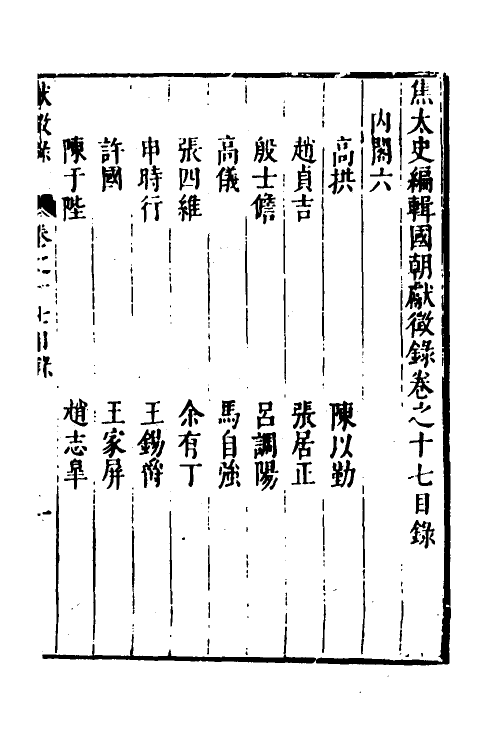 焦太史編輯國朝獻徵錄卷之十七目錄
內閣六
高拱 陳以勤
趙貞吉 張居正
殷士儋 呂調陽
高儀 馬自強
張四維 余有丁
申時行 王錫爵
許國 王家屏
陳于陛 趙志皐
獻徵錄 卷之十七目錄 一